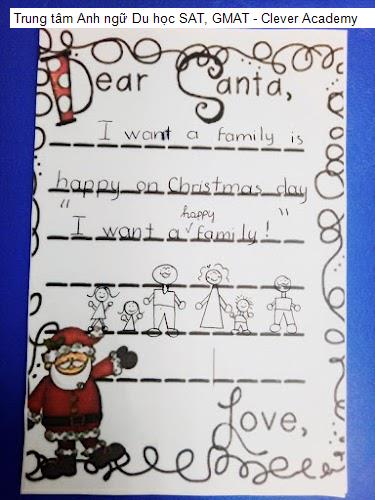 Trung tâm Anh ngữ Du học SAT, GMAT - Clever Academy
Dear Santa,
I want a family is
happy on Christmas day
" I want a happy family! "
Love,